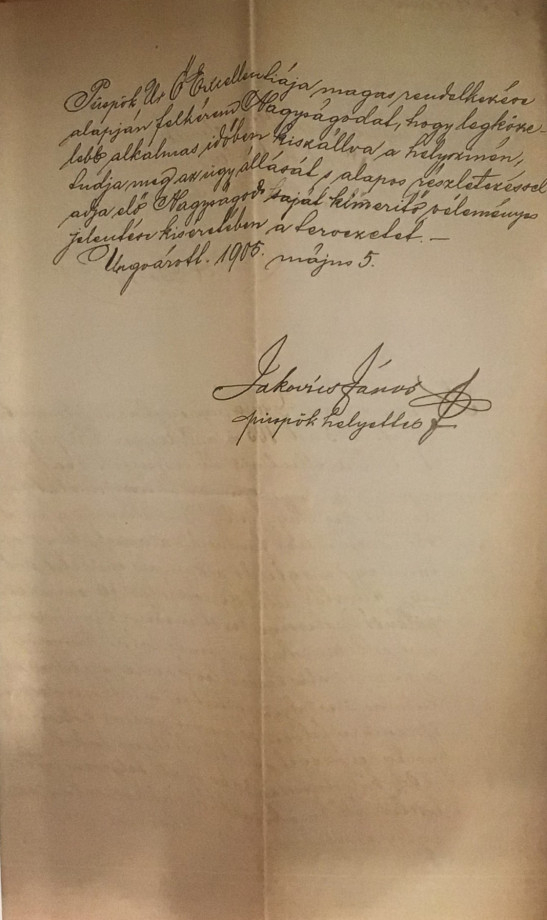 Püspök Úr Ő Excellentiája magas rendelkezése
alapján felkérem Nagyságodat, hogy legköze-
lebb alkalmas időben kiszállva a helyszinén,
tudja meg az ügy állását s alapos részletezéssel
adja elő Nagyságod saját kimeritő véleményes
jelentése kiseretében a tervezetet. —
Ungvárott. 1905. május 5.
Jakovics János
püspök helyettes